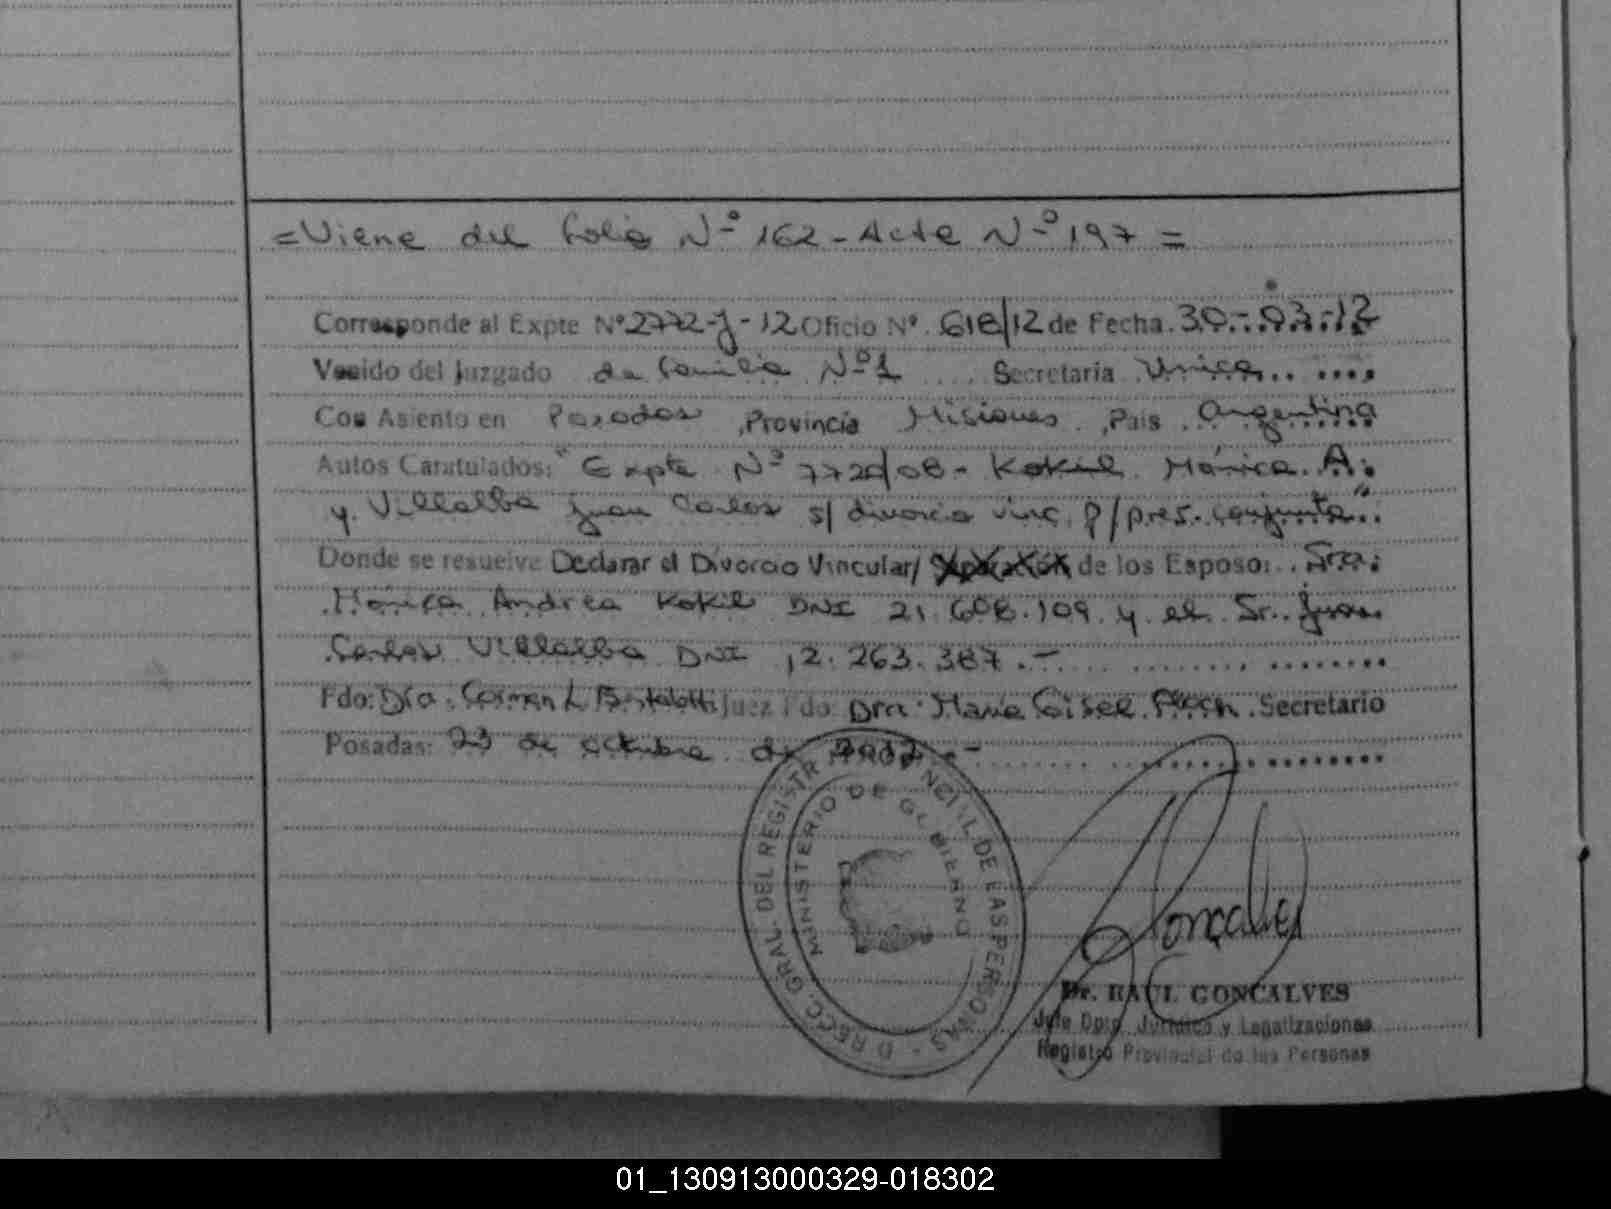 =Viene del folio Nº 162-Acta Nº 197=
Corresponde al Expte Nº 2772-J-12 Oficio Nº 618/12 de Fecha 30-03-12
Venido del Juzgado de Familia Nº 1 Secretaria Unica
Con Asiento en Posadas, Provincia Misiones, Pais Argentina
Autos Caratulados: "Expte Nº 772/08 - Kokil Mónica A.
y Villalba Juan Carlos s/ divorcio vinc. p/pres. conjunta"
Donde se resuelve Declarar el Divorcio Vincular/ Separación de los Esposo: Sra.
Mónica Andrea Kokil DNI 21.608.109 y el Sr. Juan
Carlos Villalba DNI 12.263.387.-
Fdo: Dra. Carmen L Bertolotti Juez Fdo Dra. Maria Gisel Secretario
Posadas: 23 de octubre de 2012.-
DIRECC. GRAL. DEL REGISTRO PROVINCIAL DE LAS PERSONAS
MINISTERIO DE GOBIERNO
Goncalves
Dr. RAUL GONCALVES
Jefe Dpto. Jurídico y Legalizaciones
Registro Provincial de las Personas
01_130913000329-018302